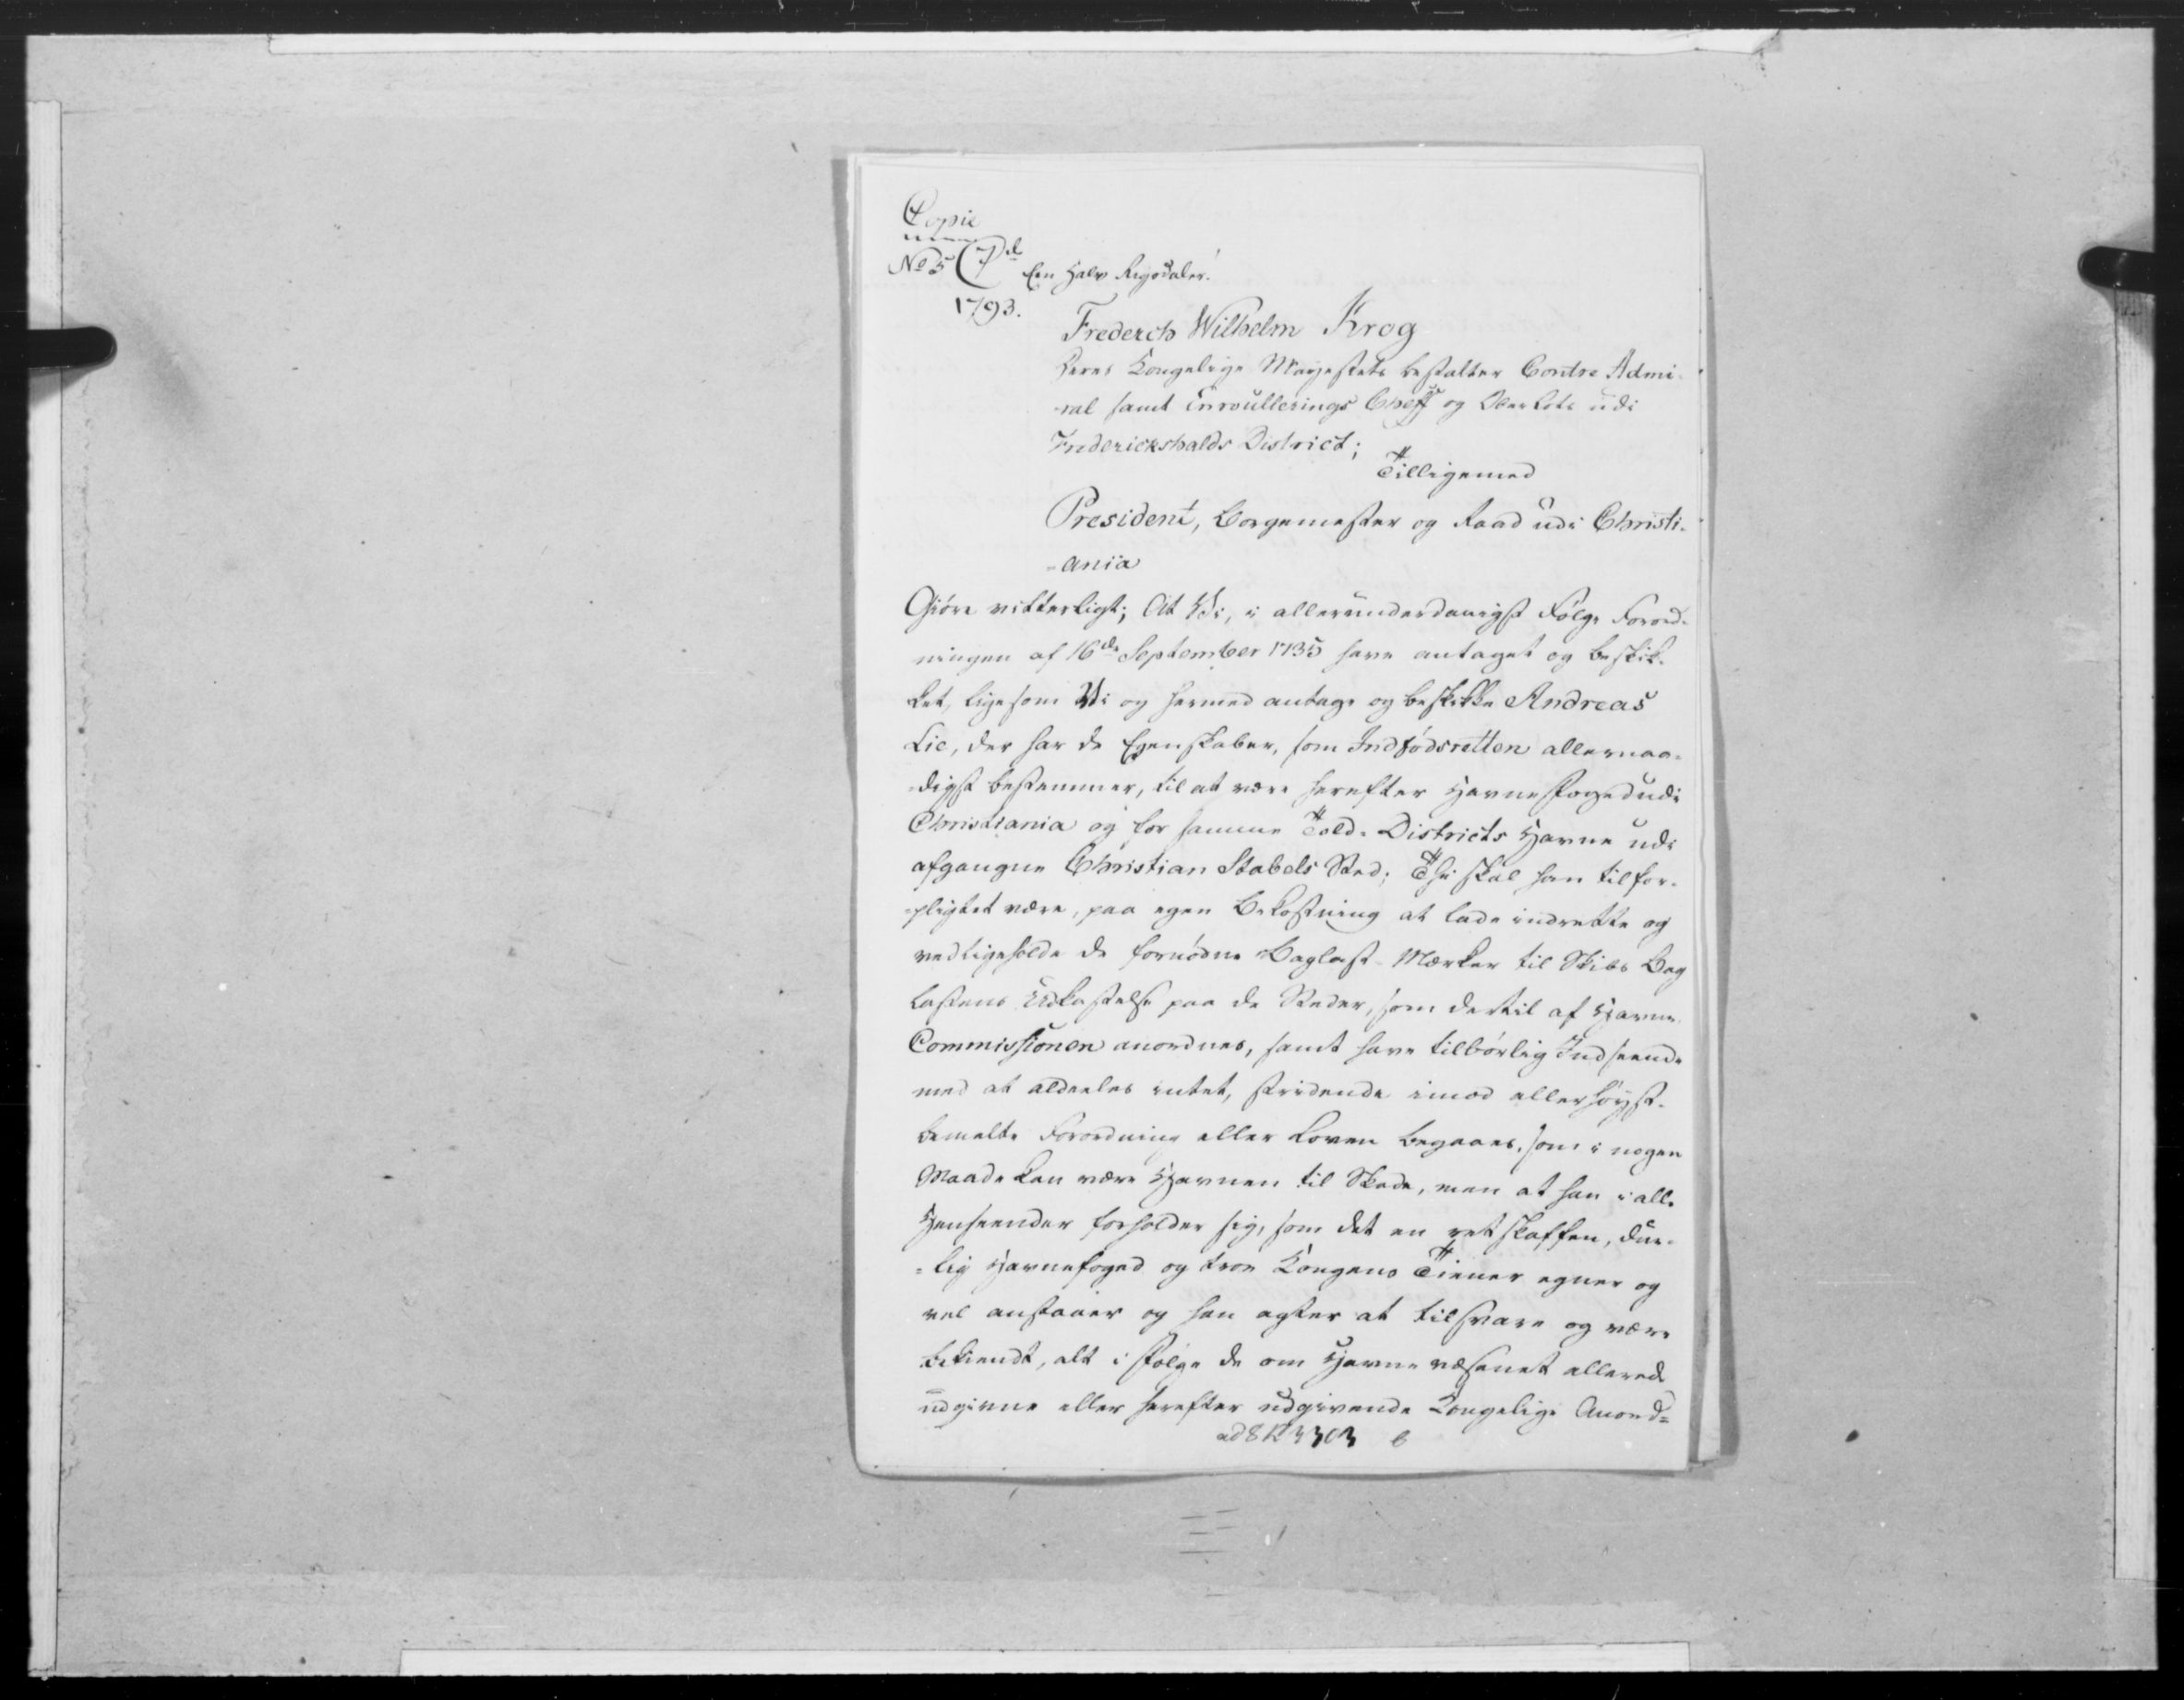 Copie
No 5
Een Halv Rigsdaler.
1793.
Frederch Wilhelm Krog
Deres Kongelige Mayestets bestalter Contre Admi-
-ral samt Enroullerings Cheff og Oberlots udi
Frederickshalds District;
Tilligemed
President, Borgemester og Raad udi Christi-
-ania
Giöre vitterligt; At Vi, i allerunderdanigst Fölge Forord-
ningen af 16de September 1735 have antaget og beskik-
ket, ligesom Vi og hermed antage og beskikke Andreas
Lie, der har de Egenskaber, som Indfödsretten allernaa-
-digst bestemmer, til at være herefter Havnefoged udi
Christiania og for samme Told-Districts Havne udi
afgangne Christian Stabels Sted; Thi skal han tilfor-
-pligtet være, paa egen Bekostning at lade indrette og
vedligeholde de fornödne Baglast-Mærker til Skibs Bag
lastens Udkastelse paa de Steder, som dertil af Havne
Commissionen anordnes, samt have tilbörlig Indseende
med at aldeeles intet, stridende imod allerhöyst-
bemelte Forordning eller Loven begaaes, som i nogen
Maade kan være Havnen til Skade, men at han i alle
Henseender forholder sig, som det en retskaffen, due-
=lig Havnefoged og troe Kongens Tiener egner og
vel anstaaer og han agter at tilsvare og være
bekiendt, alt i Fölge de om Havne væsenet allerede
udgivne eller herefter udgivende Kongelige Anord=
ad 8 K 3303 b